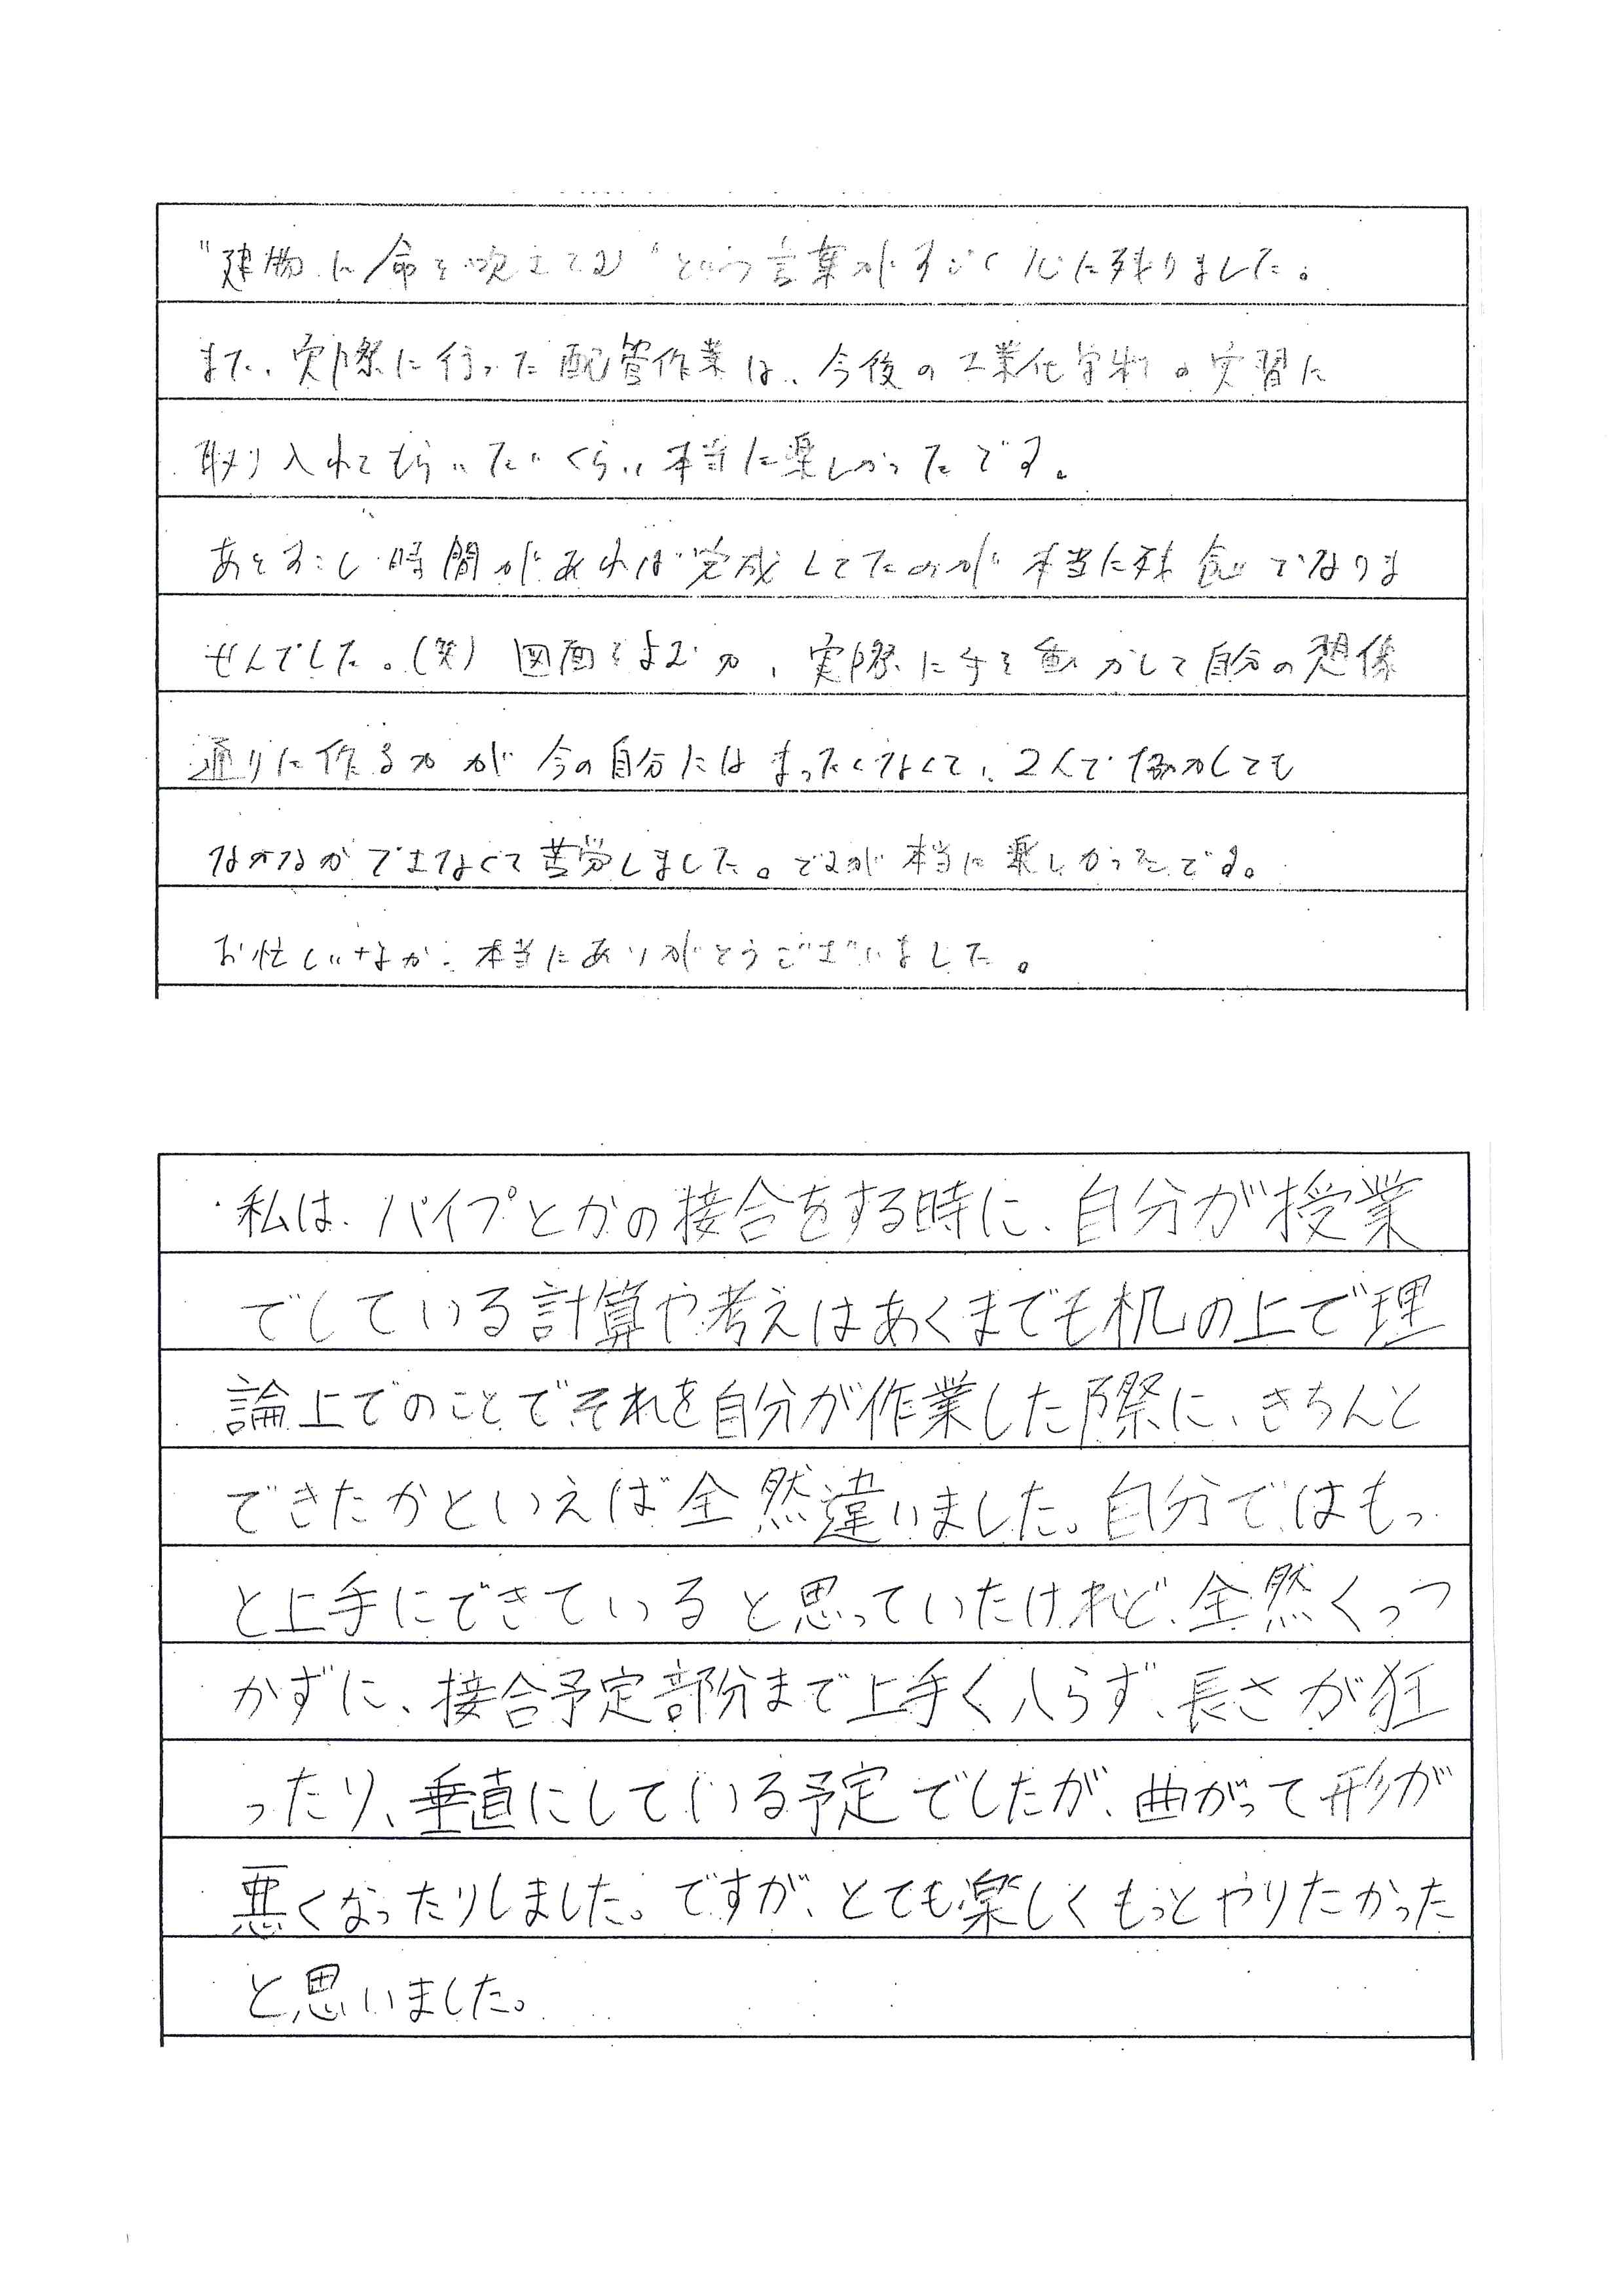 "建物に命を吹きこむ"という言葉がすごく心に残りました。
また、実際に行った配管作業は、今後の工業化学科の実習に
取り入れてもらいたいくらい本当に楽しかったです。
あとすこし時間があれば完成してたのが本当に残念でなりま
せんでした。(笑) 図面をよむ力、実際に手を動かして自分の想像
通りに作る力が今の自分にはまったくなくて、2人で協力しても
なかなかできなくて苦労しました。ですが本当に楽しかったです。
お忙しいなか、本当にありがとうございました。
・私は、パイプとかの接合をする時に、自分が授業
でしている計算や考えはあくまでも机の上で理
論上でのことでそれを自分が作業した際に、きちんと
できたかといえば全然違いました。自分ではもっ
と上手にできていると思っていたけれど、全然くっつ
かずに、接合予定部分まで上手く入らず、長さが狂
ったり、垂直にしている予定でしたが、曲がって形が
悪くなったりしました。ですが、とても楽しくもっとやりたかった
と思いました。